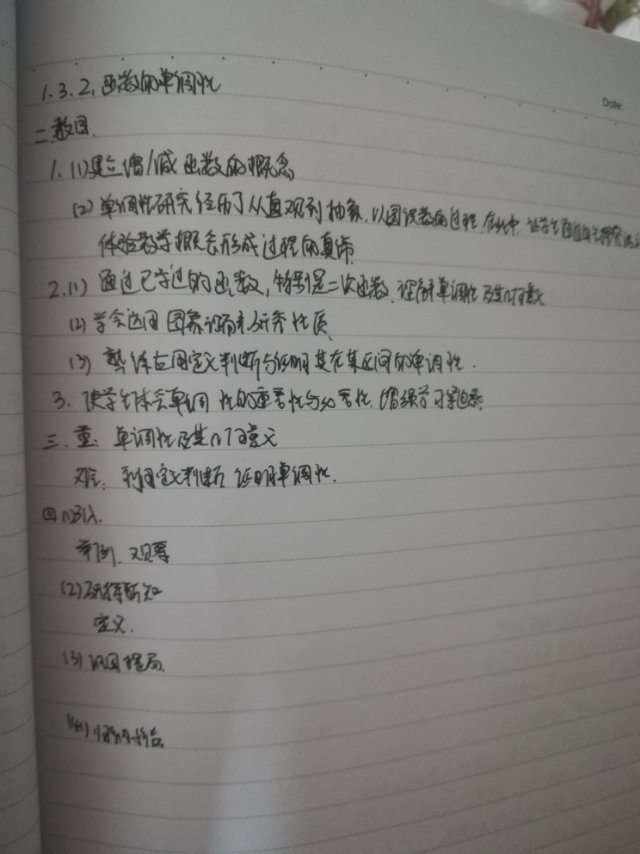 1.3.2. 函数的单调性
Date:
二.教目.
1.(1)建立增/减函数的概念
(2) 单调性研究经历了从直观到抽象,以图识数的过程,在此中,让学生通过
体验数学概念形成过程的真谛
2.(1) 通过已学过的函数,特别是二次函数,理解单调性及其几何意义
(2) 学会运用图象理解和研究性质
(3) 熟练应用定义判断与证明其在某区间的单调性.
3. 使学生体会单调性的重要性与必要性,增强学习
三.重: 单调性及其几何意义
难: 利用定义判断、证明单调性.
四.(1)引入.
举例、观察
(2)新知
定义.
(3) 巩固
(4)